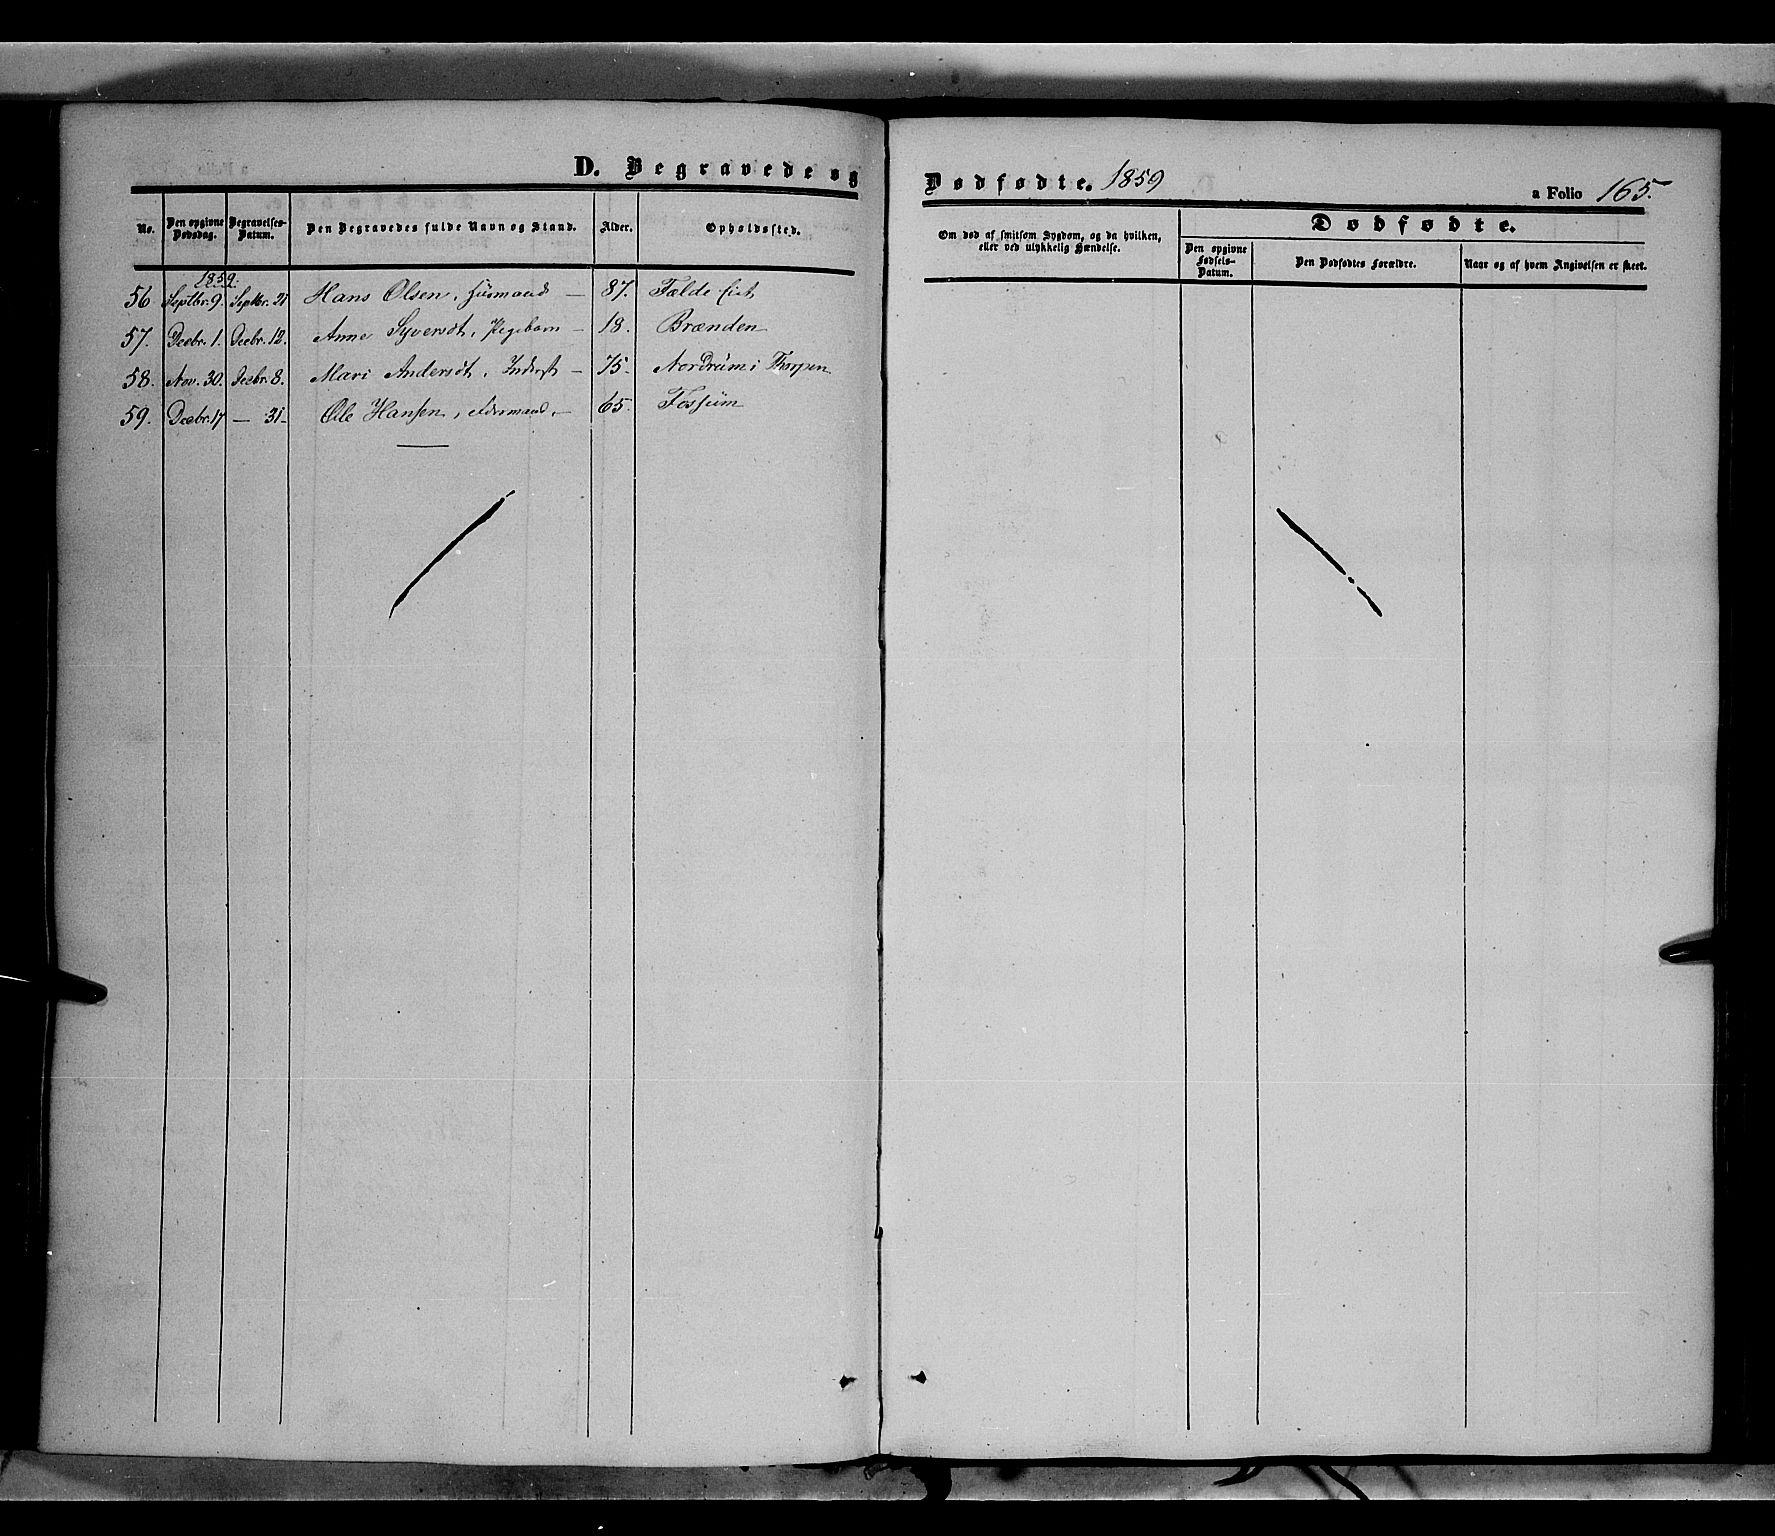 D. Begravede og Dødfødte. 1859 a Folio 165.
No. Den opgivne Dødsdag. Begravelses-Datum. Den Begravedes fulde Navn og Stand. Alder. Opholdssted. Om død af smitsom Sygdom, og da hvilken, eller ved ulykkelig Hændelse. Dødfødte. Den opgivne Fødsels-Datum. Den Dødfødtes Forældre. Naar og af hvem Angivelsen er skeet.
1859.
56 Septbr. 9. Septbr. 21 Hans Olsen, Husmand — 87. Fælde
57. Decbr. 1. Decbr. 12. Anne Syversdt, Plegebarn — 18. Brænden
58. Nov. 30. Decbr. 8. Mari Andersdt, Inderst — 75. Nordrum i Thorpen
59. Decbr. 17 — 31 — Ole Hansen, — 65. Fossum